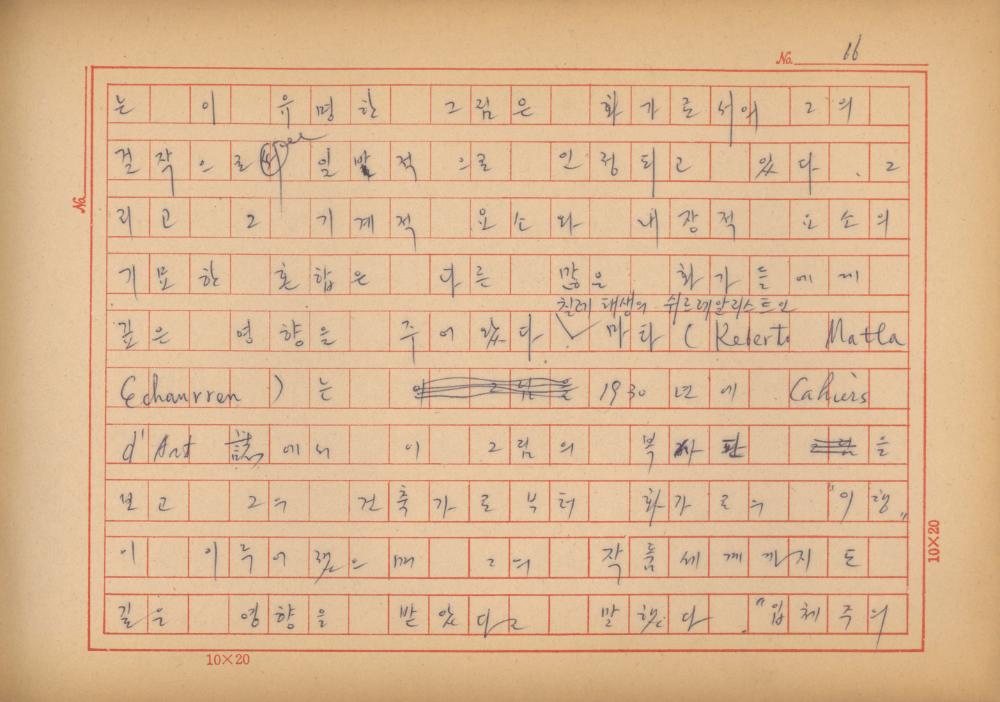 No. 66
는 이 유명한 그림은 화가로서의 그의
걸작으로서 일반적으로 인정되고 있다. 그
리고 그 기계적 요소와 내장적 요소의
기묘한 혼합은 다른 많은 화가들에게
칠레 태생의 쉬르레알리스트인
깊은 영향을 주어왔다 마타 (Roberto Matta
Echaurren ) 는 이 그림을 1930년에 Cahiers
d'Art 誌에서 이 그림의 복사판 그림을
보고 그의 건축가로부터 화가로의 "이행"
이 이루어졌으며 그의 작품세계까지도
깊은 영향을 받았다고 말했다. "입체주의
No.
10×20
10×20